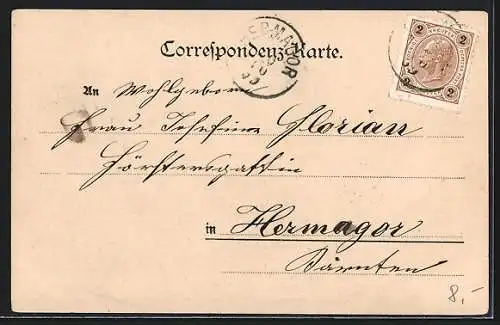 Correspondenz-Karte.
HERMAGOR
2 2
2 2
An Wohlgeboren
Frau Josefine Florian
Förstersgattin
in Hermagor
Kärnten
8,-